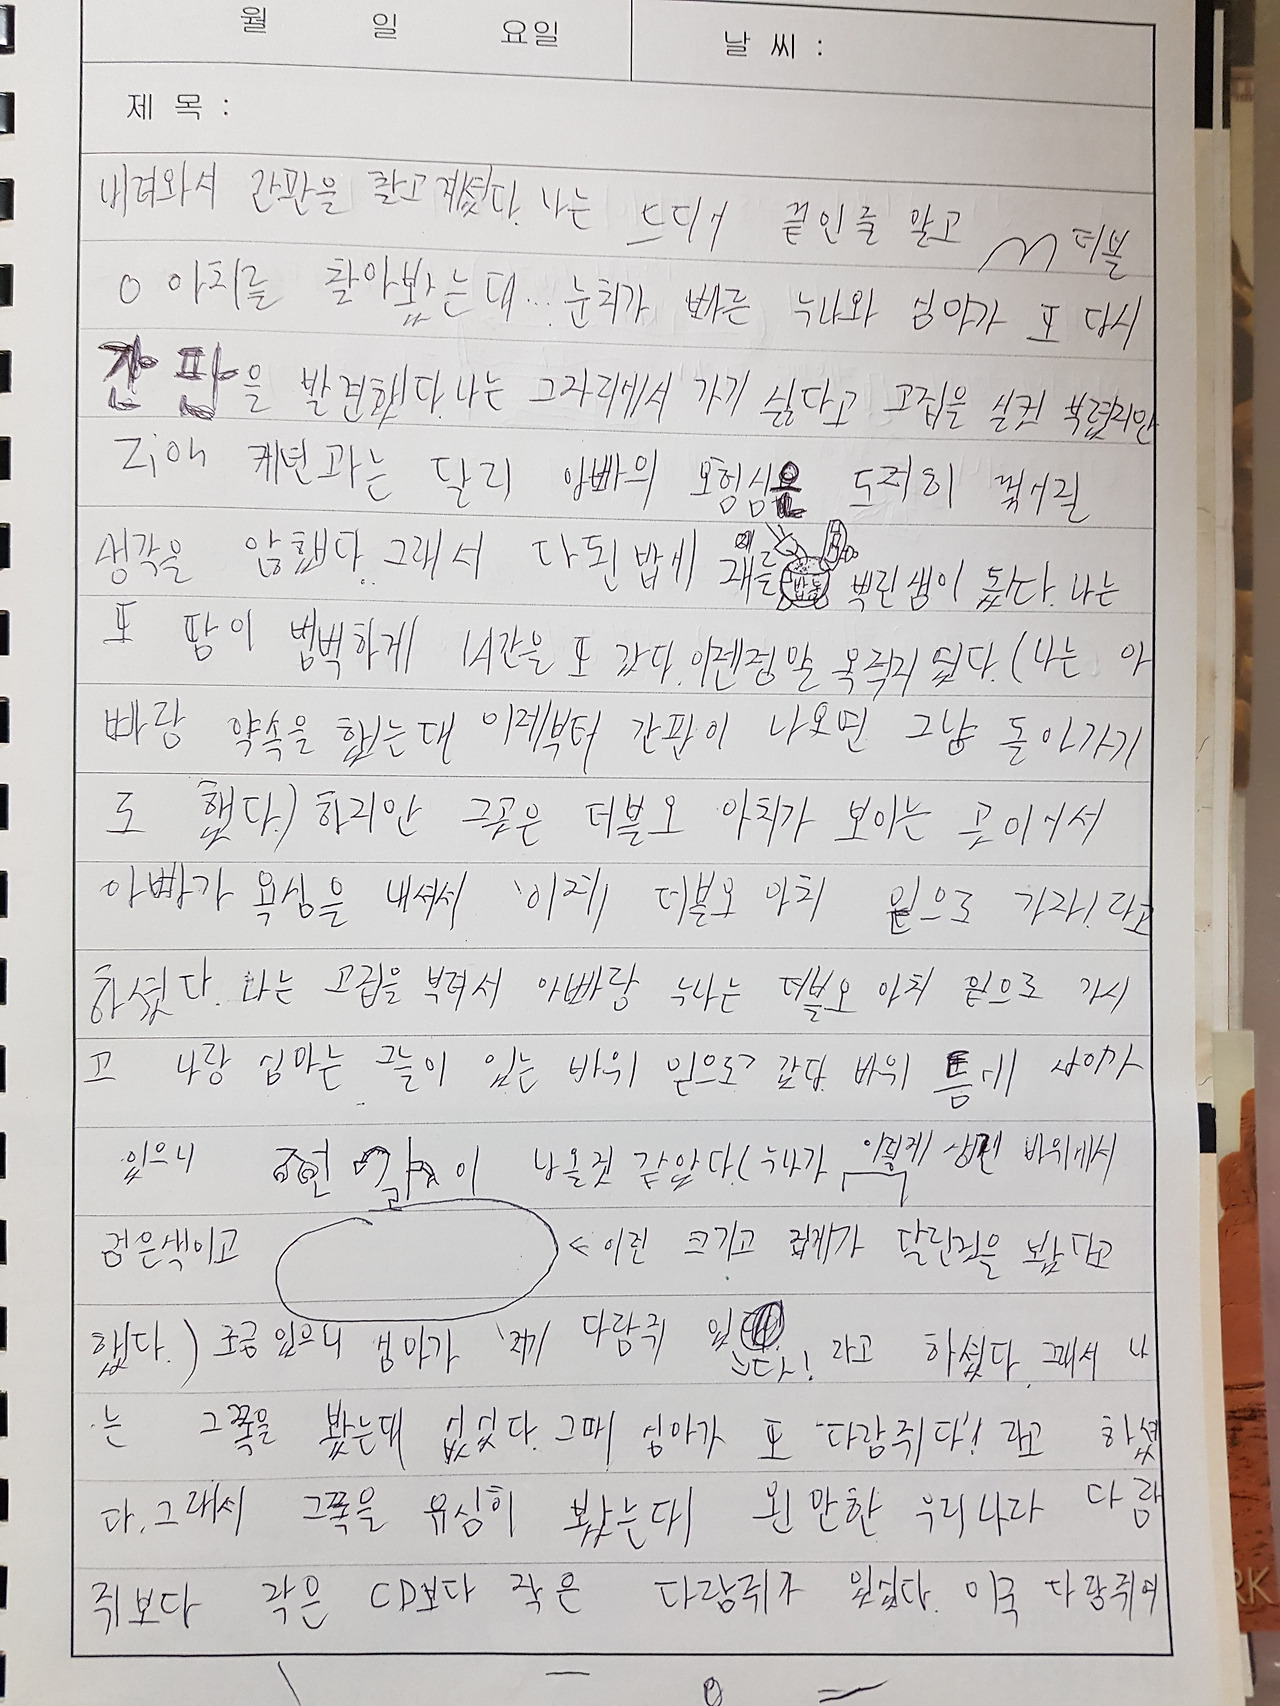 월 일 요일 날 씨 :
제 목 :
내려와서 간판을 찾고계셨다. 나는 드디어 끝인줄 알고 더블
O 아치를 찾아봤는대... 눈치가 빠른 누나와 엄마가 또 다시
간판을 발견했다. 나는 그자리에서 가기 싫다고 고집을 실컷 부렸지만
Zion 케년과는 달리 아빠의 모험심은 도저히 꺾어질
생각을 않했다. 그래서 다된밥에 재를 뿌린샘이 됬다. 나는
또 땀이 범벅하게 1시간을 또 갔다. 이젠정말 옥죄지 됬다. (나는 아
빠랑 약속을 했는대 이제부터 간판이 나오면 그냥 돌아가기
로 했다.) 하지만 그곳은 더블오 아치가 보이는 곳이어서
아빠가 욕심을 내셔서 '이제 더블오 아치 밑으로 가자! 라고
하셨다. 나는 고집을 부려서 아빠랑 누나는 더블오 아치 밑으로 가시
고 나랑 엄마는 그늘이 있는 바위 밑으로 갔다. 바위 틈에
있으니 전갈이 나올것 같았다. (누나가 이렇게 생긴 바위에서
검은색이고 ← 이런 크기고 집게가 달린것을 봤다고
했다.) 조금있으니 엄마가 '저기 다람쥐 있다! 라고 하셨다. 그래서 나
는 그쪽을 봤는대 없었다. 그때 엄마가 또 '다람쥐다'! 라고 하셨
다. 그래서 그쪽을 유심히 봤는대 왼만한 우리나라 다람
쥐보다 작은 CD보다 작은 다람쥐가 있었다. 미국 다람쥐여